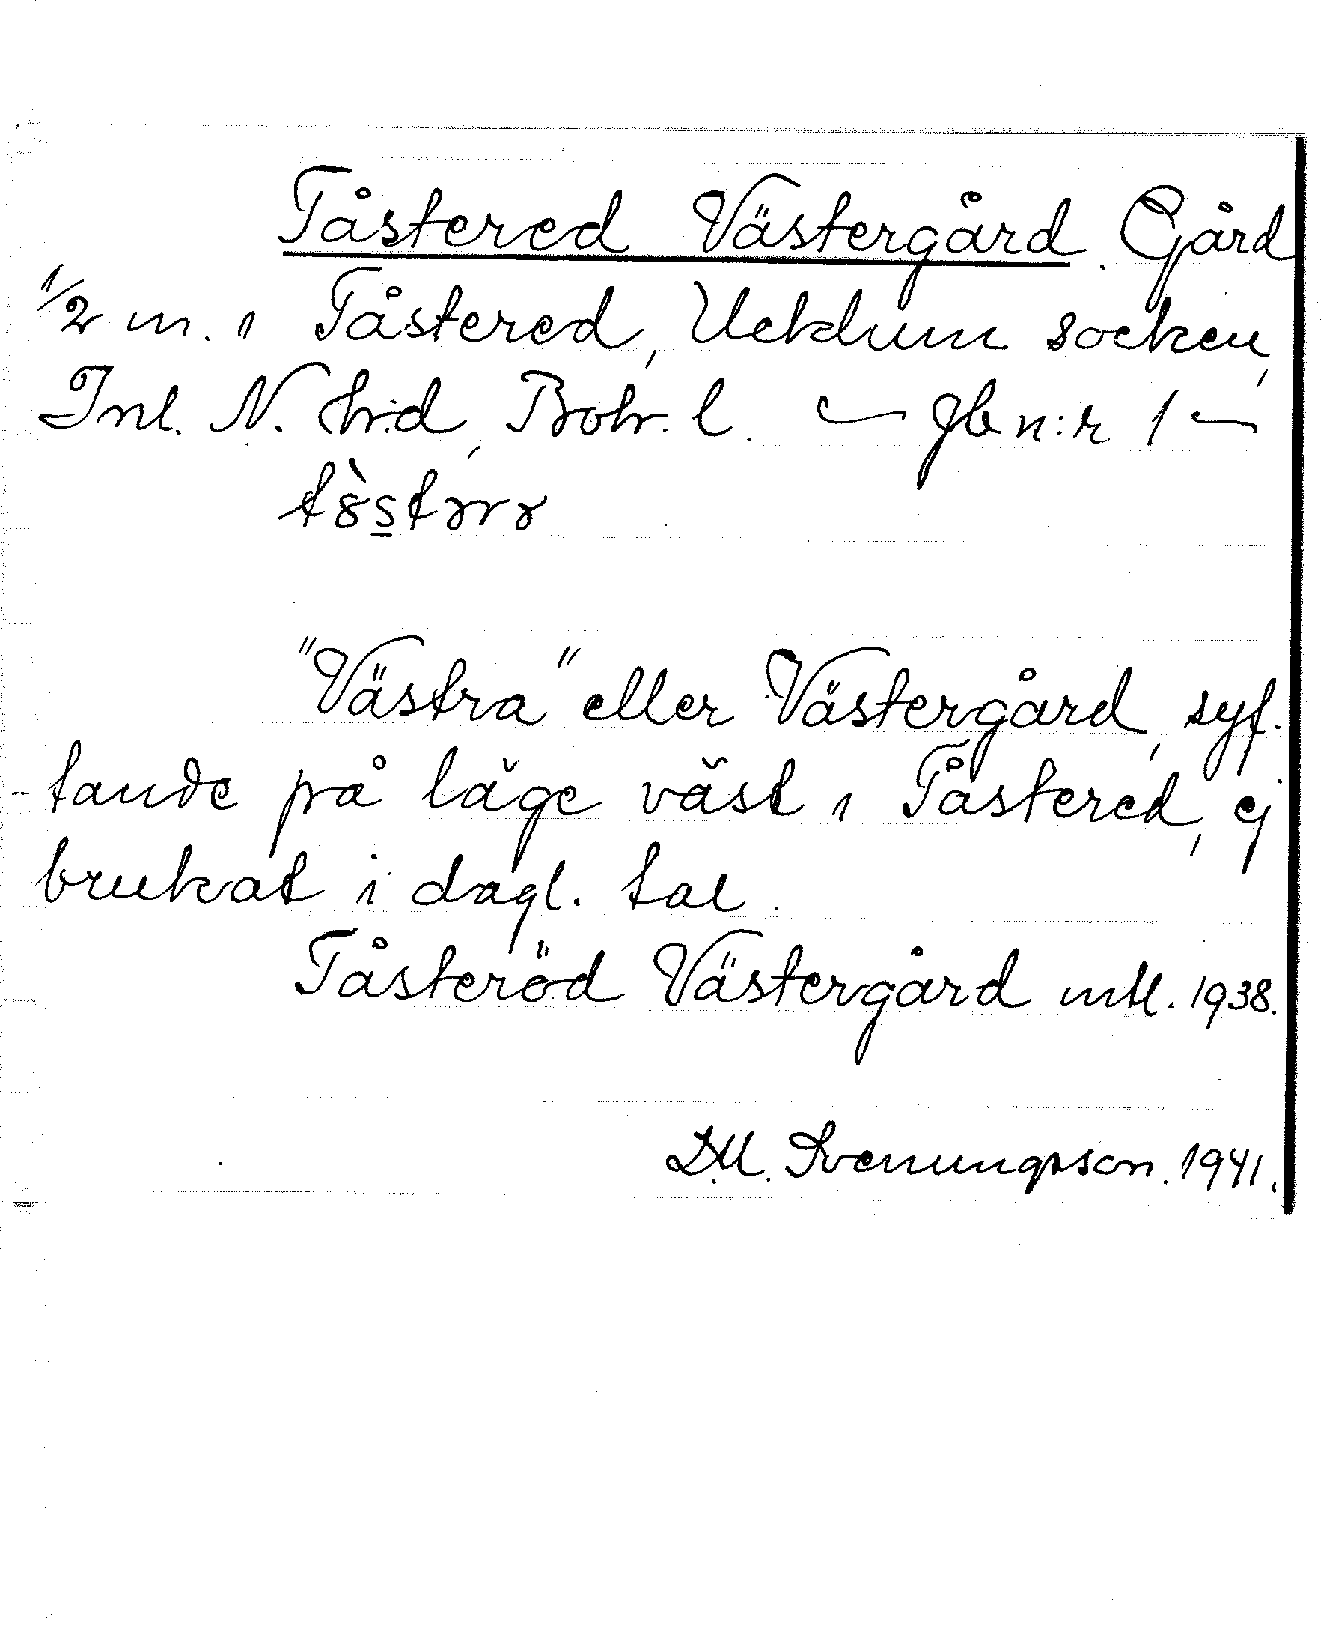 Tåstered Västergård. Gård
1/2 m. i Tåstered, Ucklum socken,
Inl. N. hrd, Boh. l. — Jb n:r 1 —
tòstərə
"Västra" eller Västergård, syf-
tande på läge väst i Tåstered, ej
brukat i dagl. tal.
Tåsteröd Västergård mtl. 1938.
D.M. Svenungsson. 1941.